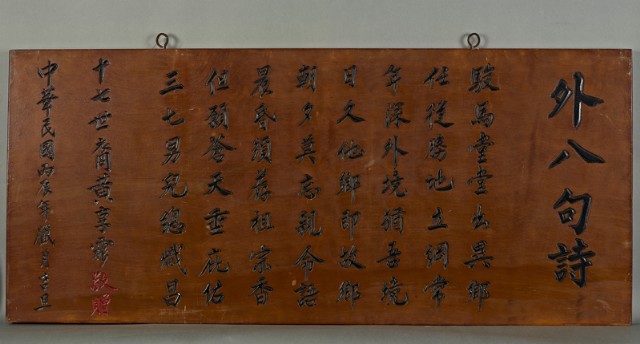 外八句詩
駿馬堂堂出異鄉
任從勝地立綱常
年深外境猶吾境
日久他鄉即故鄉
朝夕莫忘親命語
晨昏須荐祖宗香
但願蒼天垂庇佑
三七男兒總熾昌
十七世裔黃享敬贈
中華民國丙辰年月吉旦